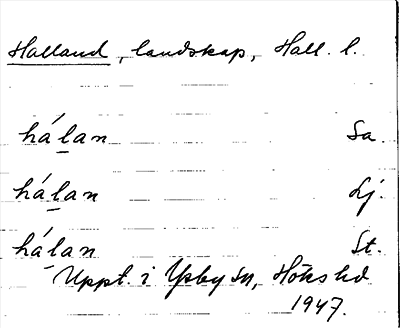 Halland, landskap, Hall. l.
hálan Sa.
hálan Lj.
hálan St.
Uppt. i Ysby sn, Höks hd
1947.